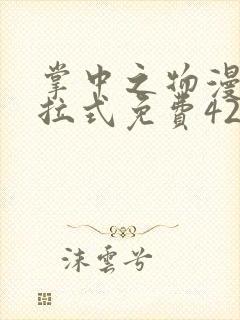 掌中之物漫
拉式免费42
沫云兮